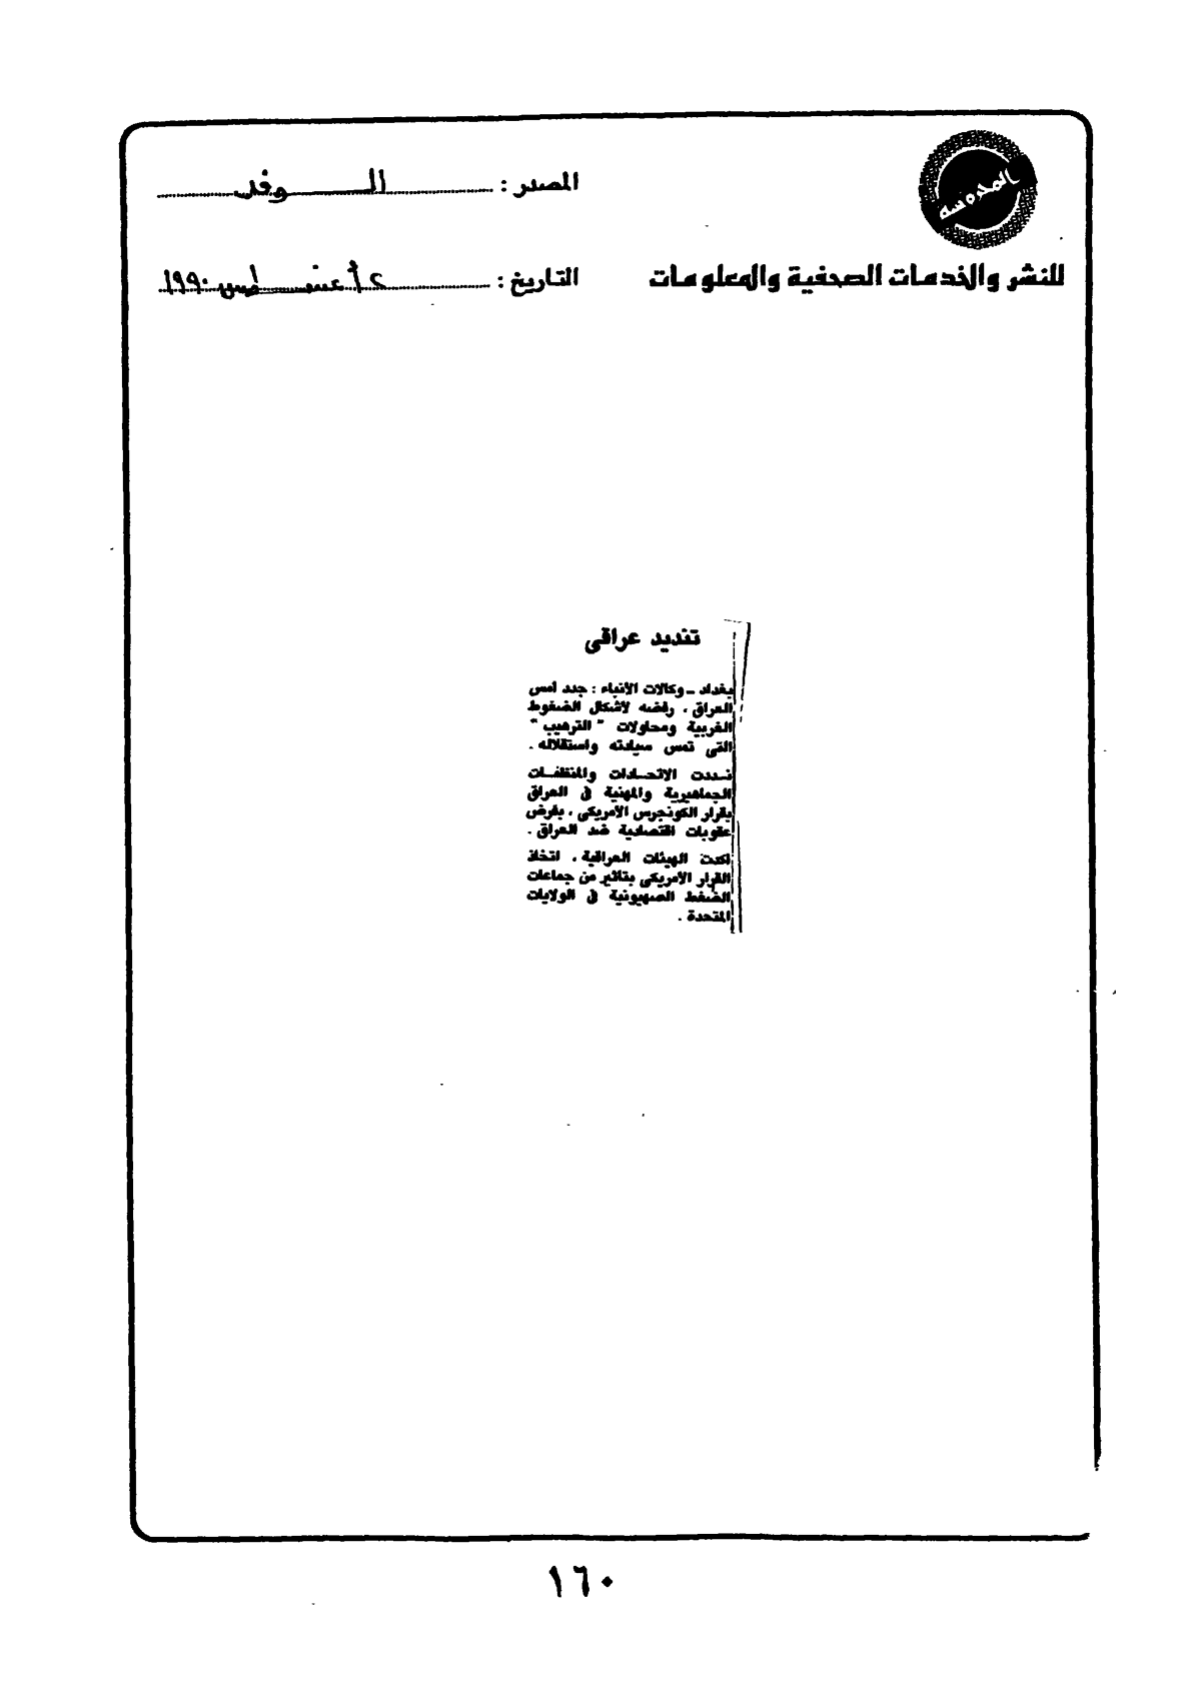 المحروسة
المصدر : الـــوفد
للنشر والخدمات الصحفية والمعلومات
التاريخ : ٢ أغسطس ١٩٩٠
تنديد عراقى
بغداد ـ وكالات الأنباء : جدد أمس
العراق ، رفضه لأشكال الضغوط
الغربية ومحاولات " الترهيب "
التى تمس سيادته واستقلاله .
نددت الاتحادات والمنظمات
الجماهيرية والمهنية فى العراق
بقرار الكونجرس الأمريكى ، بفرض
عقوبات اقتصادية ضد العراق .
اكدت الهيئات العراقية ، اتخاذ
القرار الأمريكى بتاثير من جماعات
الضغط الصهيونية فى الولايات
المتحدة .
١٦٠